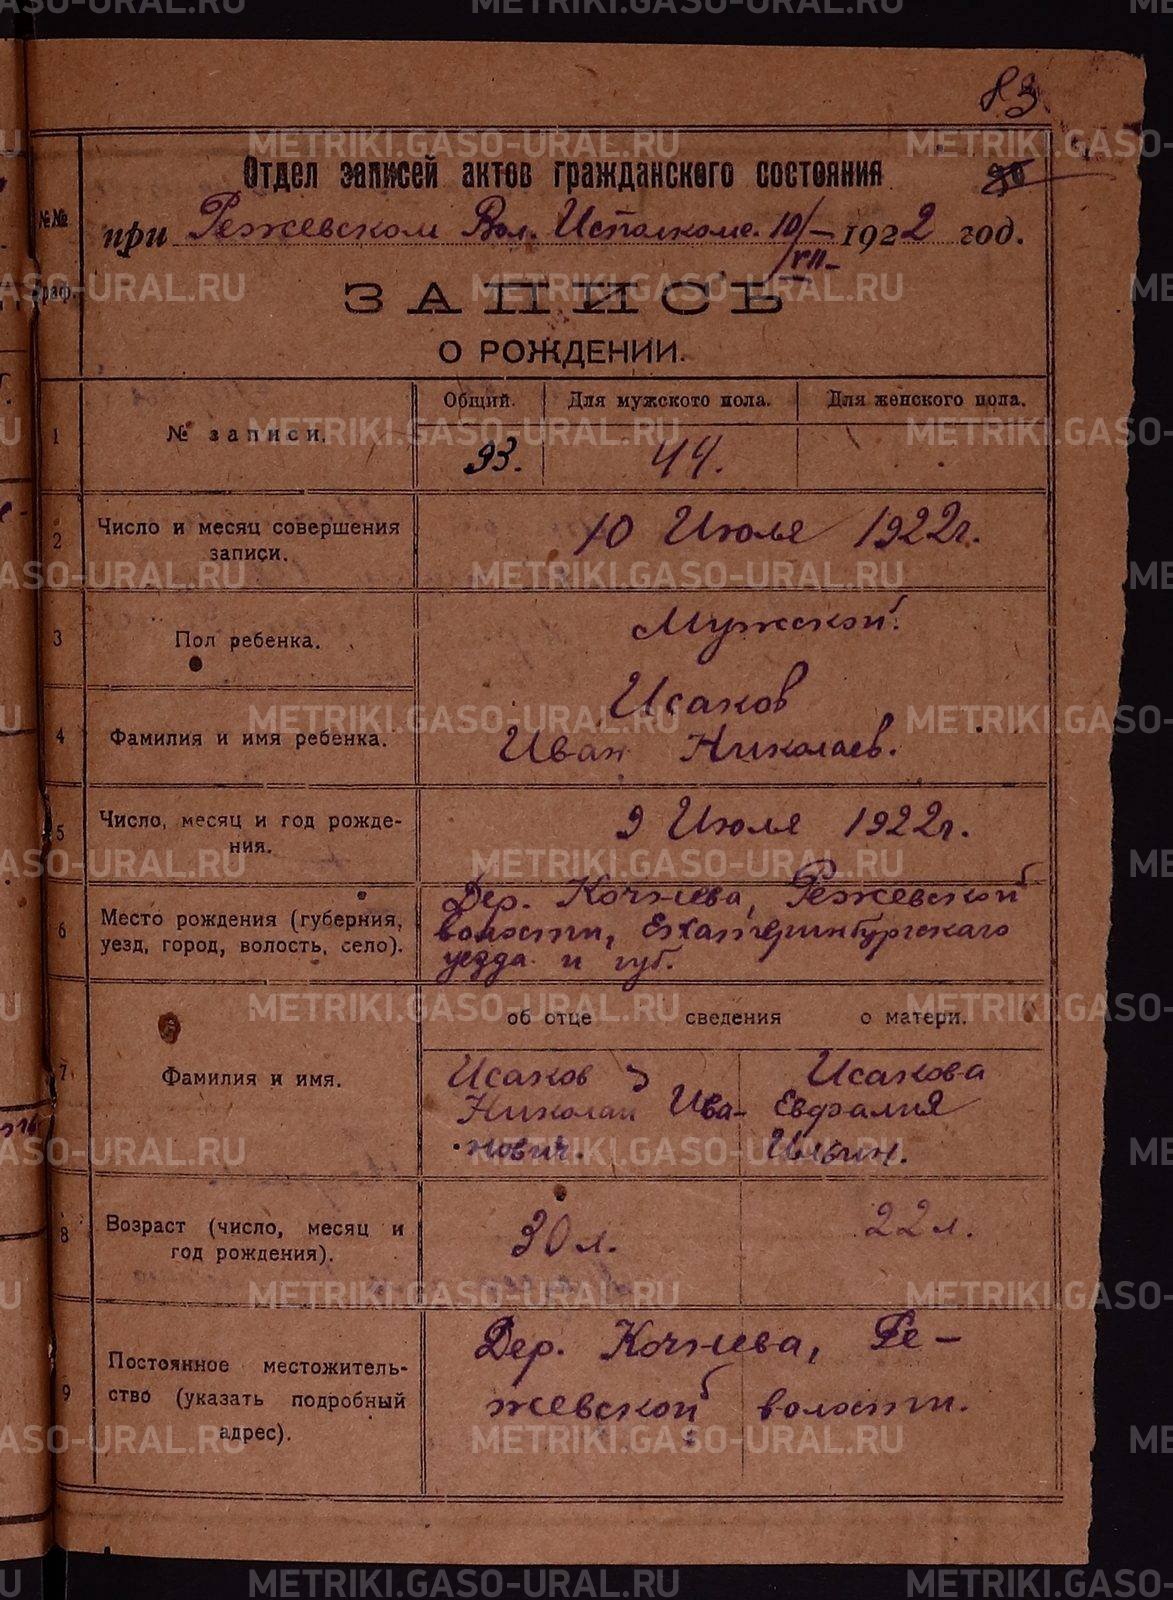 83
Отдел записей актов гражданского состояния
№№ граф.
при Режевском Вол. Исполкоме 10/VII- 1922 год.
ЗАПИСЬ
О РОЖДЕНИИ.
Общий. Для мужского пола. Для женского пола.
1 № записи. 93. 44.
2 Число и месяц совершения записи. 10 Июля 1922г.
3 Пол ребенка. Мужской.
4 Фамилия и имя ребенка. Исаков
Иван Николаев.
5 Число, месяц и год рожде-
ния. 9 Июля 1922г.
6 Место рождения (губерния,
уезд, город, волость, село).
Дер. Кочнева, Режевской
волости, Екатеринбургскаго
уезда и губ.
об отце сведения о матери.
7 Фамилия и имя.
Исаков
Николай Ива-
нович.
Исакова
Евфалия
Ильин.
8 Возраст (число, месяц и
год рождения). 30 л. 22 л.
9 Постоянное местожитель-
ство (указать подробный
адрес).
Дер. Кочнева, Ре-
жевской волости.
METRIKI.GASO-URAL.RU